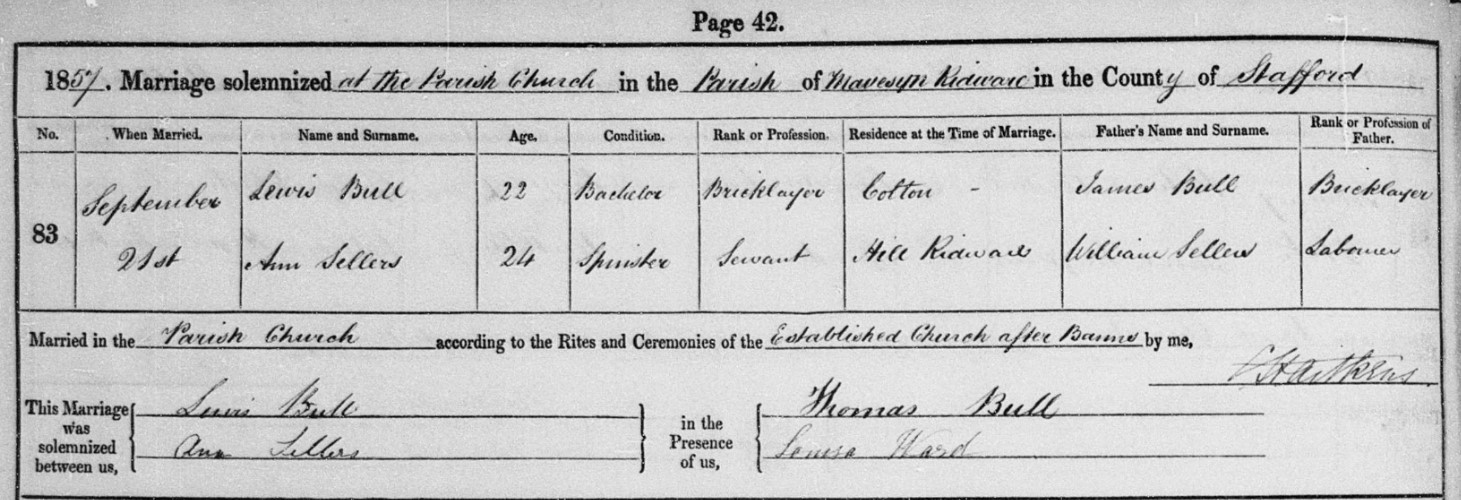 Page 42.
1857. Marriage solemnized at the Parish Church in the Parish of Mavesyn Ridware in the County of Stafford
No. When Married. Name and Surname. Age. Condition. Rank or Profession. Residence at the Time of Marriage. Father's Name and Surname. Rank or Profession of Father.
September Lewis Bull 22 Bachelor Bricklayer Colton - James Bull Bricklayer
83
21st Ann Sellers 24 Spinster Servant Hill Ridware William Sellers Labourer
Married in the Parish Church according to the Rites and Ceremonies of the Established Church after Banns by me,
This Marriage was solemnized between us,
Lewis Bull
Ann Sellers
in the Presence of us,
Thomas Bull
Louisa Ward